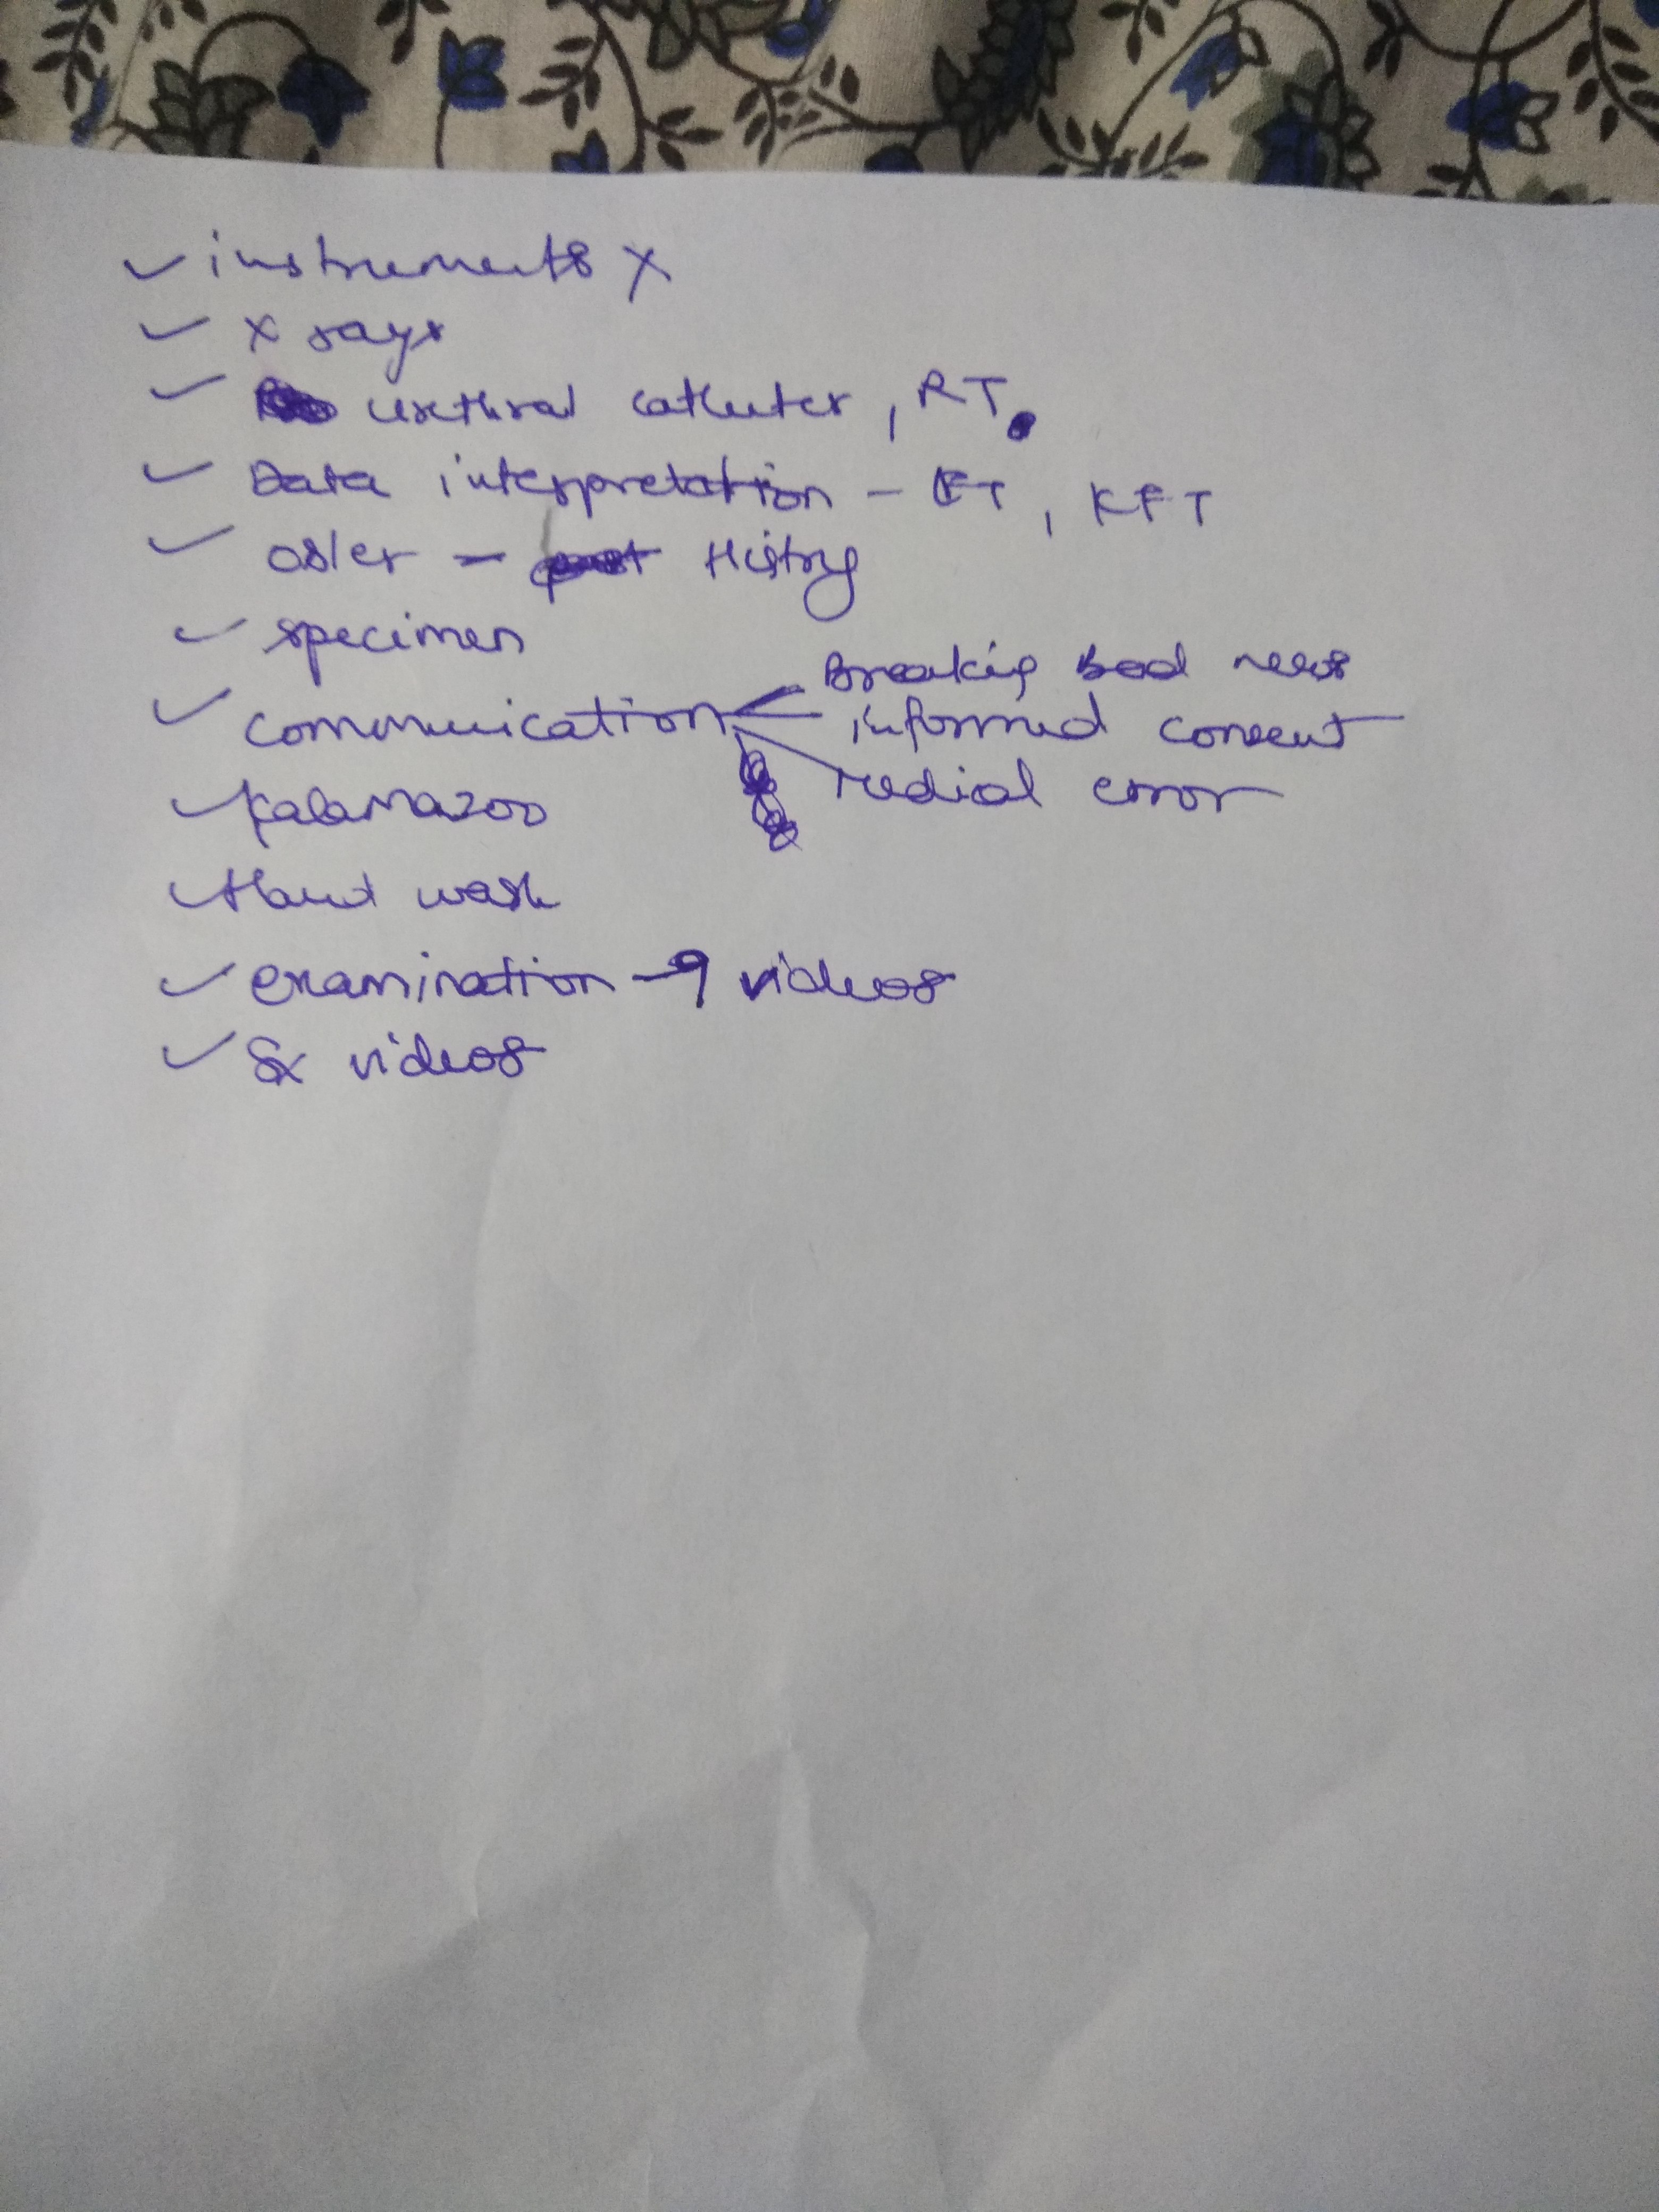 ✓ instruments X
✓ X rays
✓ urethral catheter, RT.
✓ Data interpretation - , KFT
✓ osler - Histry
✓ specimen
✓ communication
Breaking bad news
informed consent
medial error
✓ Kalamazoo
✓ Hand wash
✓ examination → videos
✓ Sx videos